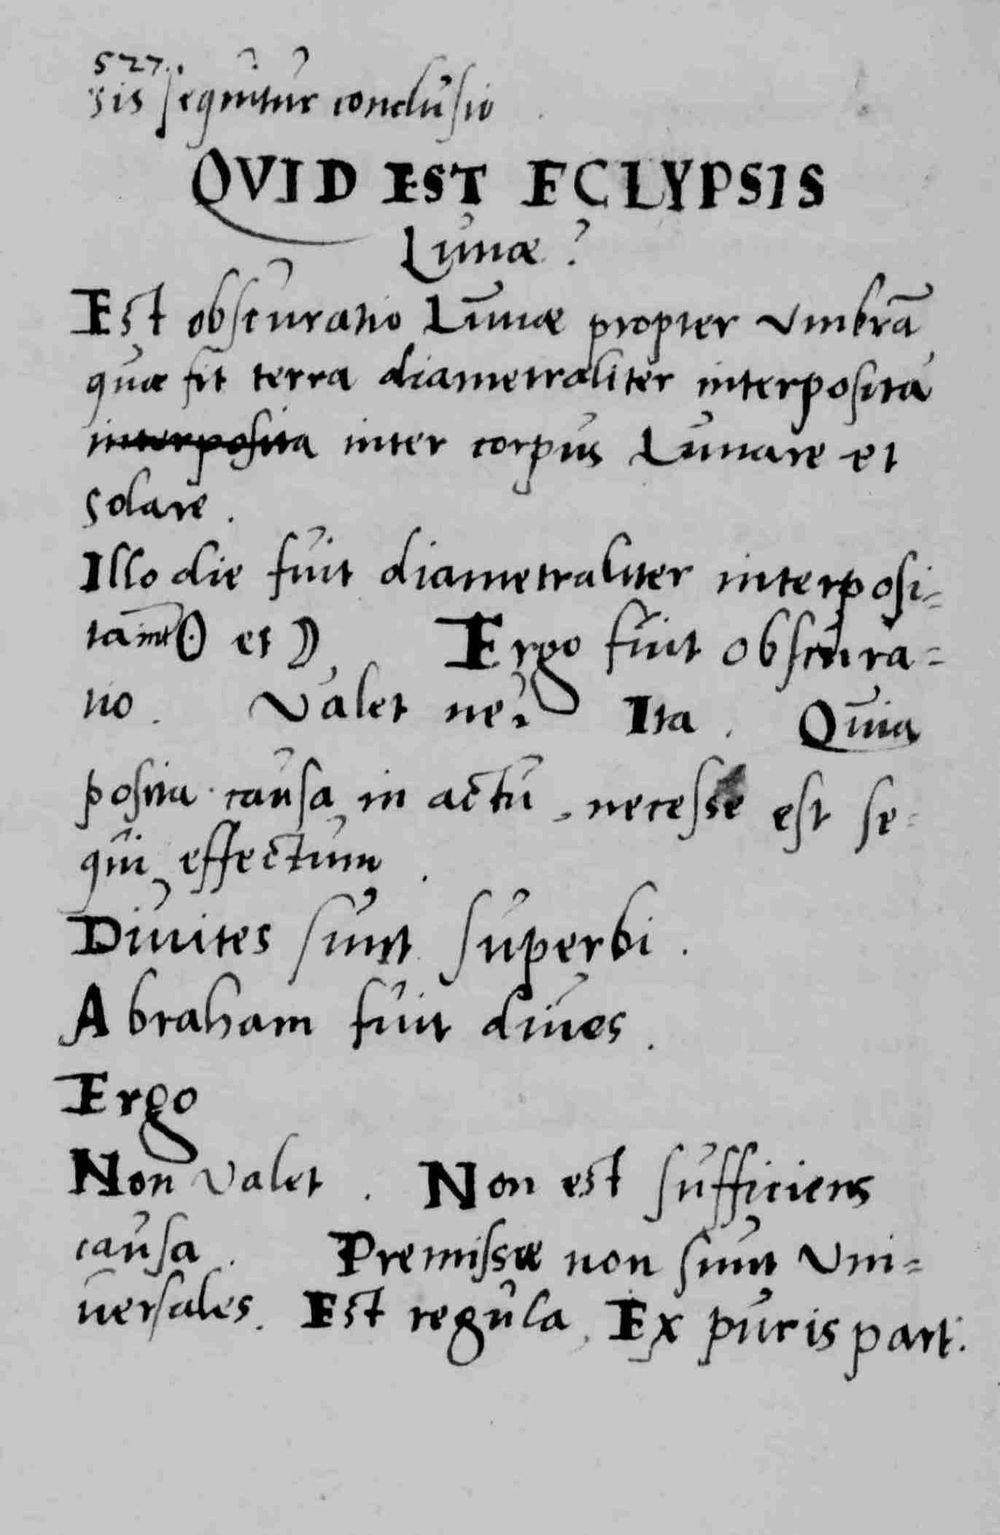 527.
sis sequitur conclusio
QVID EST ECLYPSIS
Lunæ?
Est obscuratio Lunæ propter vmbrā
quæ fit terra diametraliter interposita
interposita inter corpus Lunare et
solare.
Illo die fuit diametraliter interposi=
ta inter ☉ et ☽ Ergo fuit obscura=
tio. Valet ne? Ita. Quia
posita causa in actu, necesse est se=
qui effectum.
Diuites sunt superbi.
Abraham fuit diues.
Ergo
Non valet. Non est sufficiens
causa. Premissæ non sunt vni=
uersales. Est regula, Ex puris part.